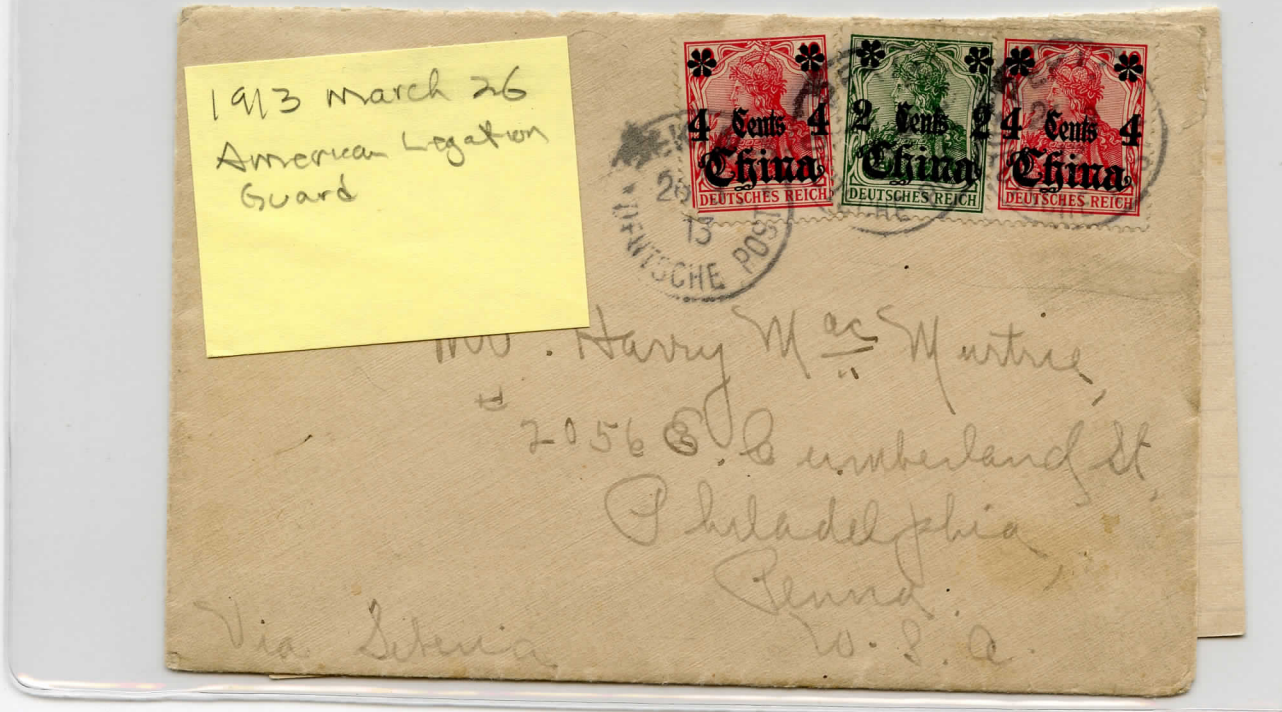 1913 March 26
American Legation
Guard
4 Cents 4
China
DEUTSCHES REICH
2 Cents 2
China
DEUTSCHES REICH
4 Cents 4
China
DEUTSCHES REICH
26
13
DEUTSCHE POST
Mr. Harry Mac Murtrie,
# 2056 E. Cumberland St,
Philadelphia,
Penna.
Via Siberia
U. S. A.